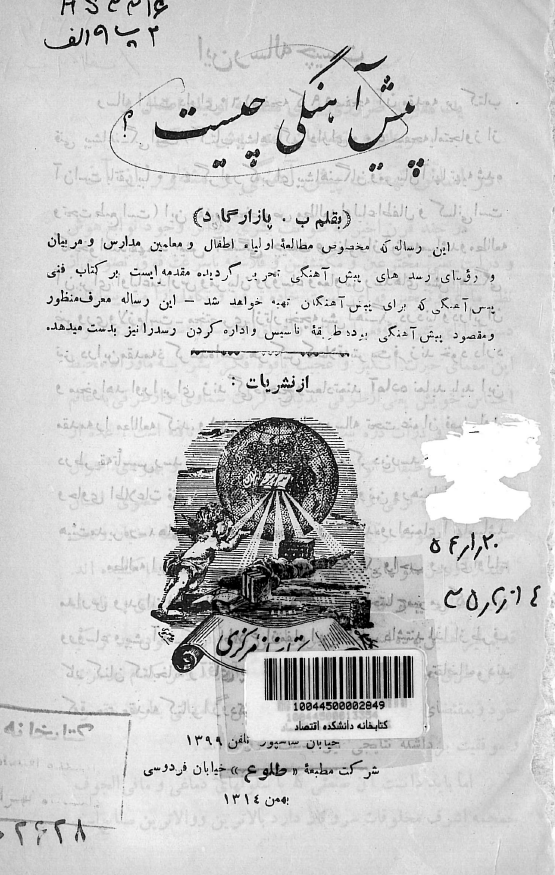 HS ۳۳۱۶
پیش آهنگی چیست ؟
(بقلم ب . پازارگاد)
این رساله که مخصوص مطالعهٔ اولیاء اطفال و معلمین مدارس و مربیان
و رؤسای رسد های پیش آهنگی تحریر گردیده مقدمه ایست بر کتاب فنی
پیش آهنگی که برای پیش آهنگان تهیه خواهد شد – این رساله معرف منظور
ومقصود پیش آهنگی بوده طریقهٔ تاسیس واداره کردن رسدرا نیز بدست میدهد.
از نشریات :
کتابخانه مرکزی
10044500002849
کتابخانه دانشکده اقتصاد
خیابان شاهپور تلفن ۱۳۹۹
شرکت مطبعهٔ «طلوع» خیابان فردوسی
بهمن ۱۳۱۴